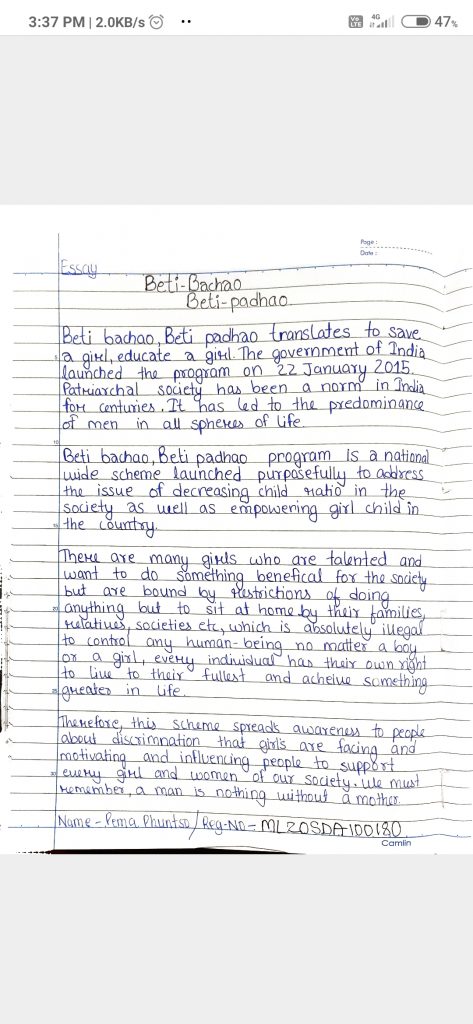 3:37 PM | 2.0KB/s
Vo LTE 4G 47%
Page:
Date:
Essay
Beti-Bachao
Beti-padhao
Beti bachao, Beti padhao translates to save
5 a girl, educate a girl. The government of India
launched the program on 22 January 2015.
Patriarchal society has been a norm in India
for centuries. It has led to the predominance
of men in all spheres of life
10
Beti bachao, Beti padhao program is a national
wide scheme launched purposefully to address
the issue of decreasing child ratio in the
society as well as empowering girl child in
15 the country.
There are many girls who are talented and
want to do something benefical for the society
but are bound by restrictions of doing
20 anything but to sit at home by their families,
relatives, societies etc, which is absolutely illegal
to control any human-being no matter a boy
or a girl, every individual has their own right
to live to their fullest and acheive something
25 greater in life.
Therefore, this scheme spreads awareness to people
about discrimnation that girls are facing and
motivating and influencing people to support
30 every girl and women of our society. We must
remember, a man is nothing without a mother.
Name - Pema Phuntso / Reg-No - ML20SDA100180
Camlin